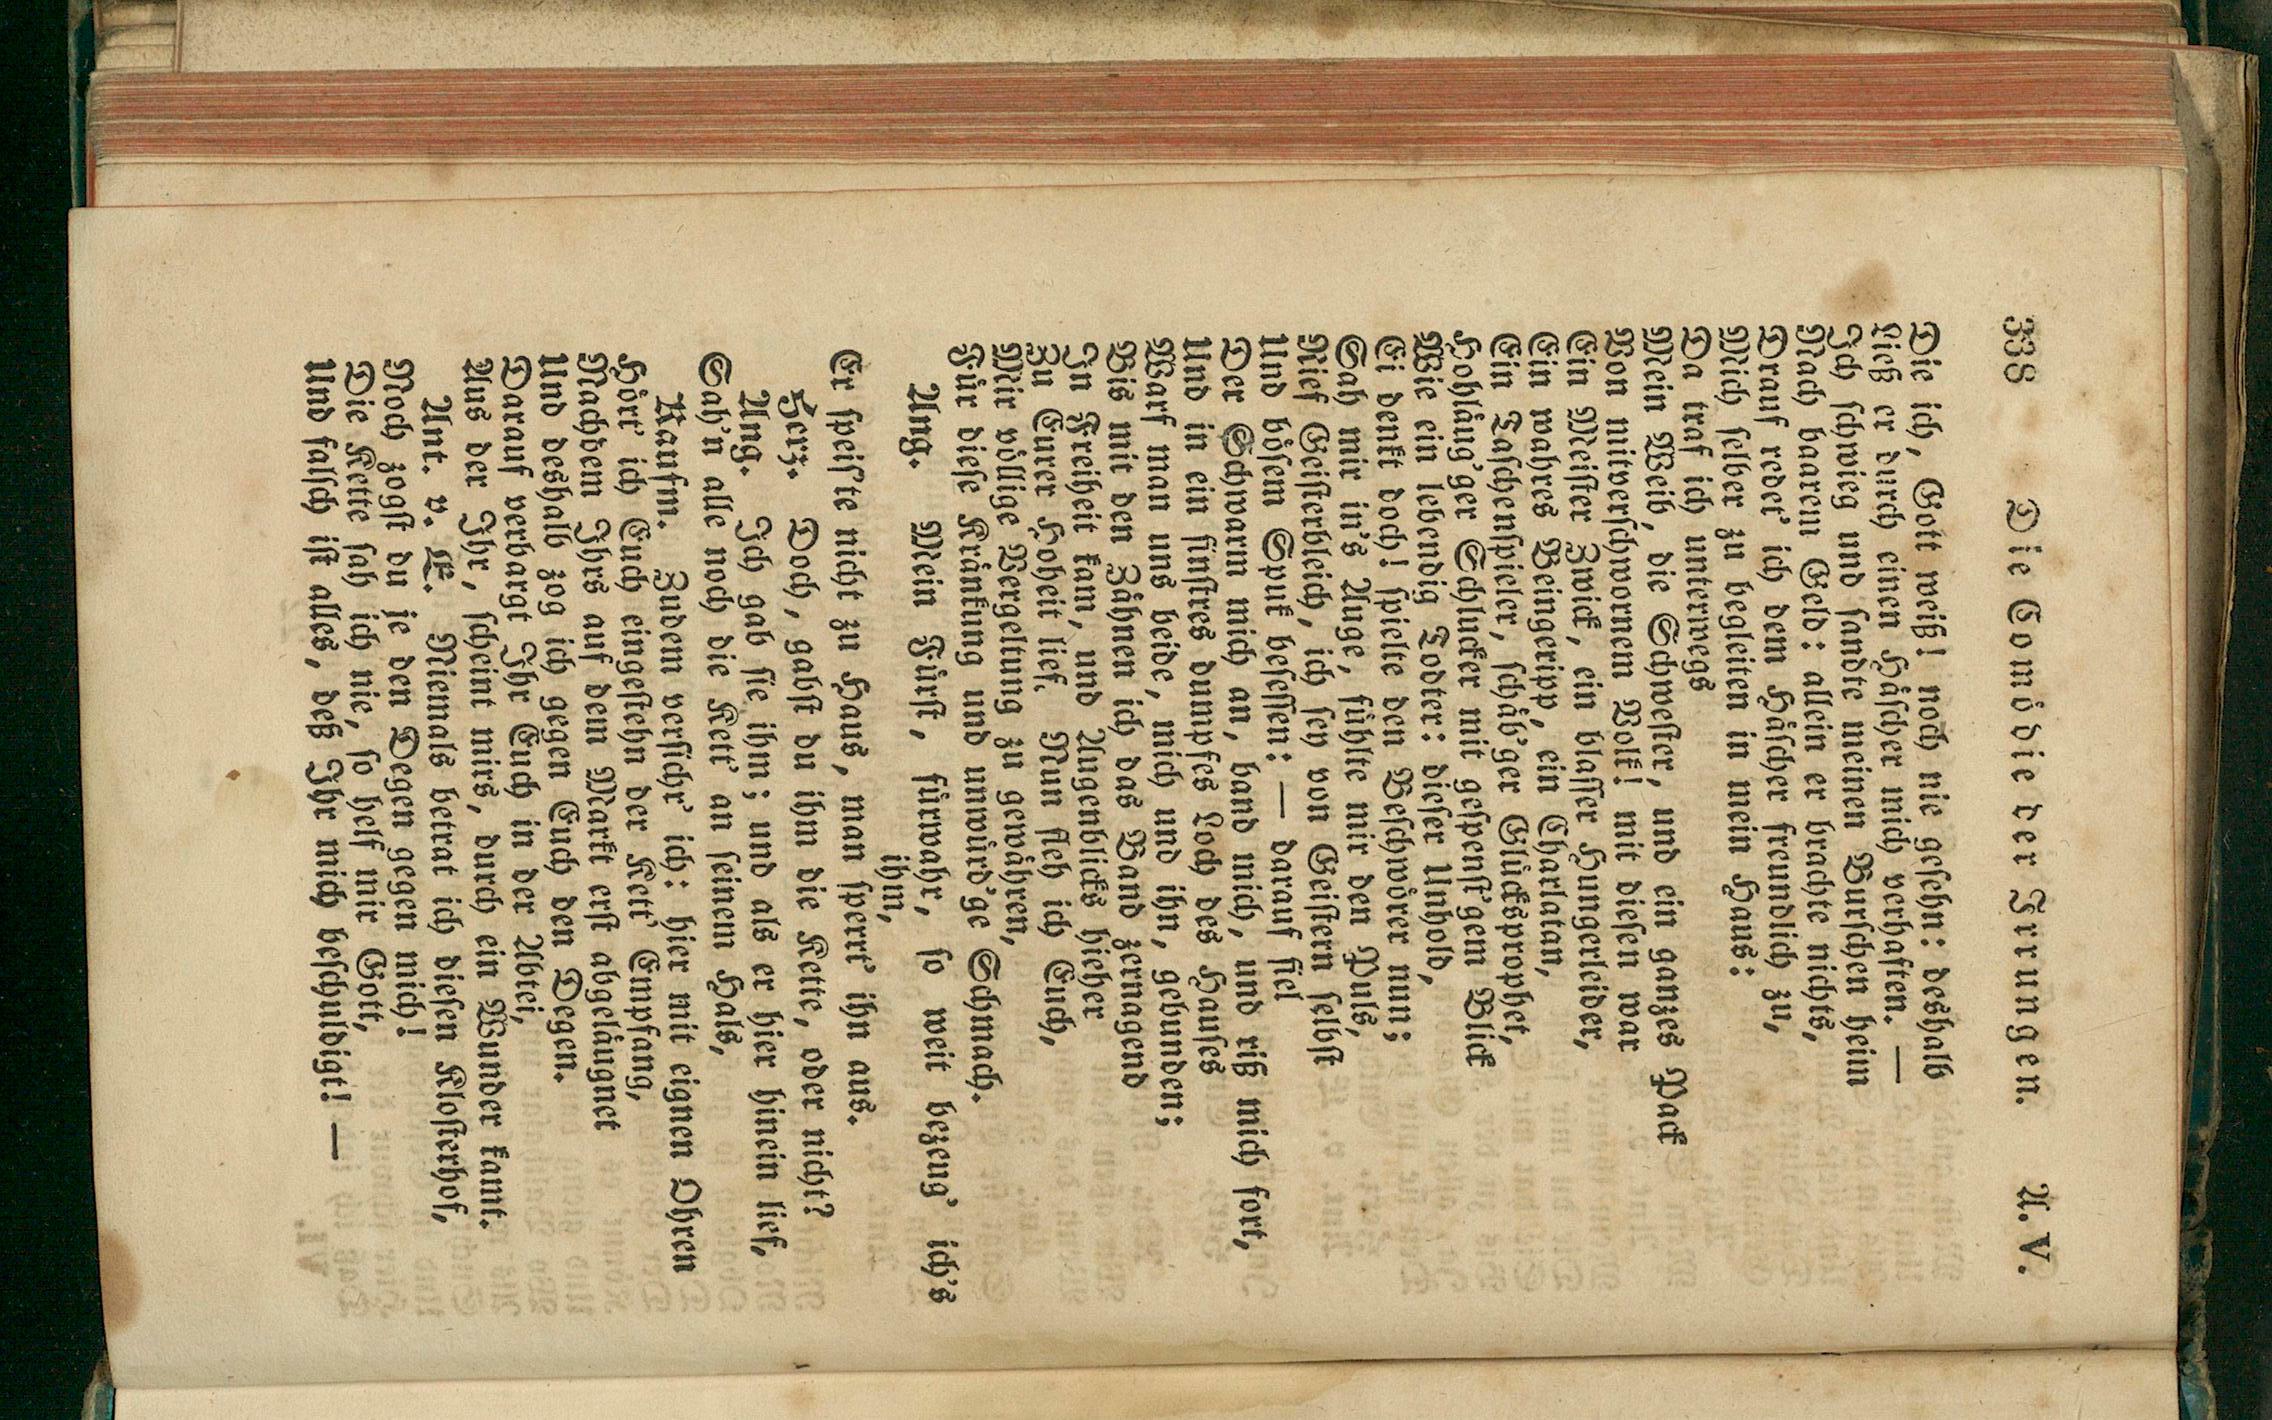 388 Die Comödie der Irrungen. A. V.
Die ich, Gott weiß! noch nie gesehn: deshalb
Ließ er durch einen Häscher mich verhaften. —
Ich schwieg und sandte meinen Burschen heim
Nach baarem Geld: allein er brachte nichts,
Drauf redet' ich dem Häscher freundlich zu,
Mich selber zu begleiten in mein Haus:
Da traf ich unterwegs
Mein Weib, die Schwester, und ein ganzes Pack
Von mitverschwornem Volk! mit diesen war
Ein Meister Zwick, ein blasser Hungerleider,
Ein wahres Beingeripp, ein Charlatan,
Ein Taschenspieler, schäb'ger Glücksprophet,
Hohläug'ger Schlucker mit gespenst'gem Blick
Wie ein lebendig Todter: dieser Unhold,
Ei denkt doch! spielte den Beschwörer nun;
Sah mir in's Auge, fühlte mir den Puls,
Rief Geisterbleich, ich sey von Geistern selbst
Und bösem Spuk besessen: — darauf fiel
Der Schwarm mich an, band mich, und riß mich fort,
Und in ein finstres dumpfes Loch des Hauses
Warf man uns beide, mich und ihn, gebunden;
Bis mit den Zähnen ich das Band zernagend
In Freiheit kam, und Augenblicks hieher
Zu Eurer Hoheit lief. Nun fleh ich Euch,
Mir völlige Vergeltung zu gewähren,
Für diese Kränkung und unwürd'ge Schmach.
Ang. Mein Fürst, fürwahr, so weit bezeug' ich's
ihm,
Er speis'te nicht zu Haus, man sperrt' ihn aus.
Herz. Doch, gabst du ihm die Kette, oder nicht?
Ang. Ich gab sie ihm; und als er hier hinein lief,
Sah'n alle noch die Kett' an seinem Hals,
Kaufm. Zudem versichr' ich: hier mit eignen Ohren
Hört' ich Euch eingestehn der Kett' Empfang,
Nachdem Ihrs auf dem Markt erst abgeläugnet
Und deshalb zog ich gegen Euch den Degen.
Darauf verbargt Ihr Euch in der Abtei,
Aus der Ihr, scheint mirs, durch ein Wunder kamt.
Ant. v. E. Niemals betrat ich diesen Klosterhof,
Noch zogst du je den Degen gegen mich!
Die Kette sah ich nie, so helf mir Gott,
Und falsch ist alles, deß Ihr mich beschuldigt! —